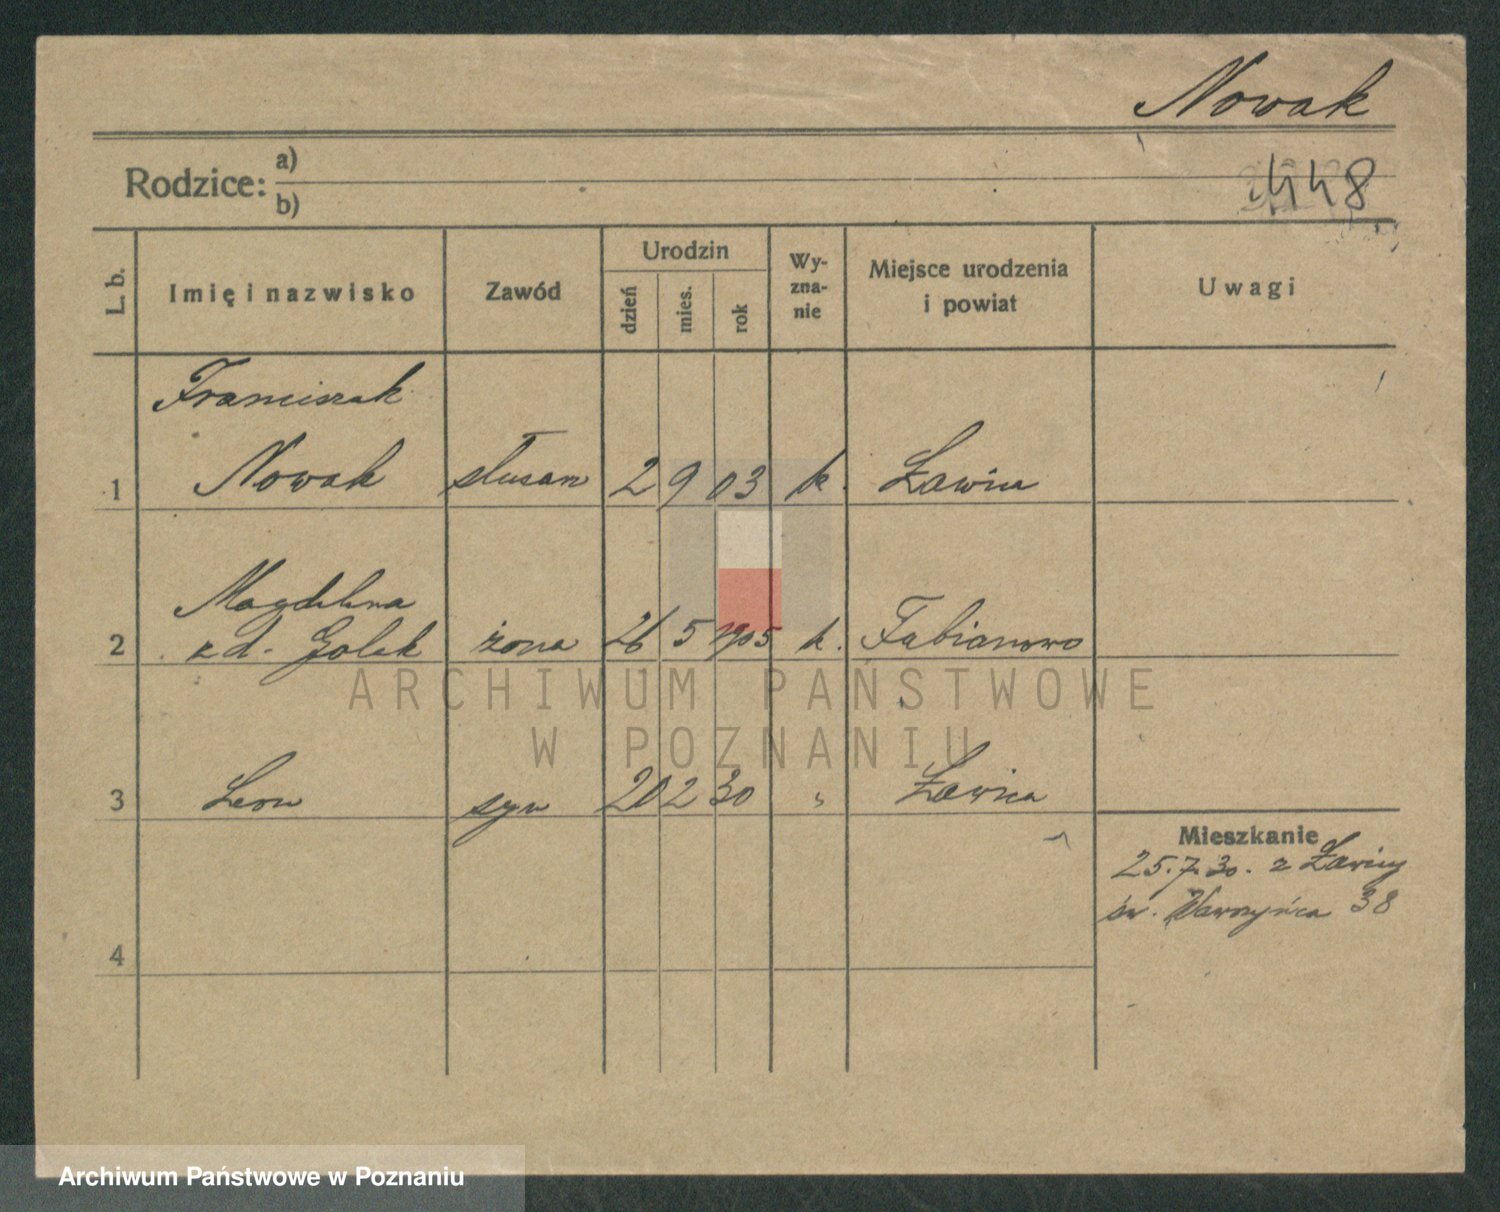 Nowak
Rodzice: a)
b)
448
L. b.
Imię i nazwisko
Zawód
Urodzin
dzień
mies.
rok
Wy-
zna-
nie
Miejsce urodzenia
i powiat
Uwagi
Franciszek
1 Nowak ślusarz 2 9 03 k. Ławica
Magdalena
2 z d. Golak żona 26 5 1905 k. Fabianowo
3 Leon syn 20 2 30 " Ławica
Mieszkanie
25.7.30. z Ławicy
św. Wawrzyńca 38
4
ARCHIWUM PAŃSTWOWE
W POZNANIU
Archiwum Państwowe w Poznaniu